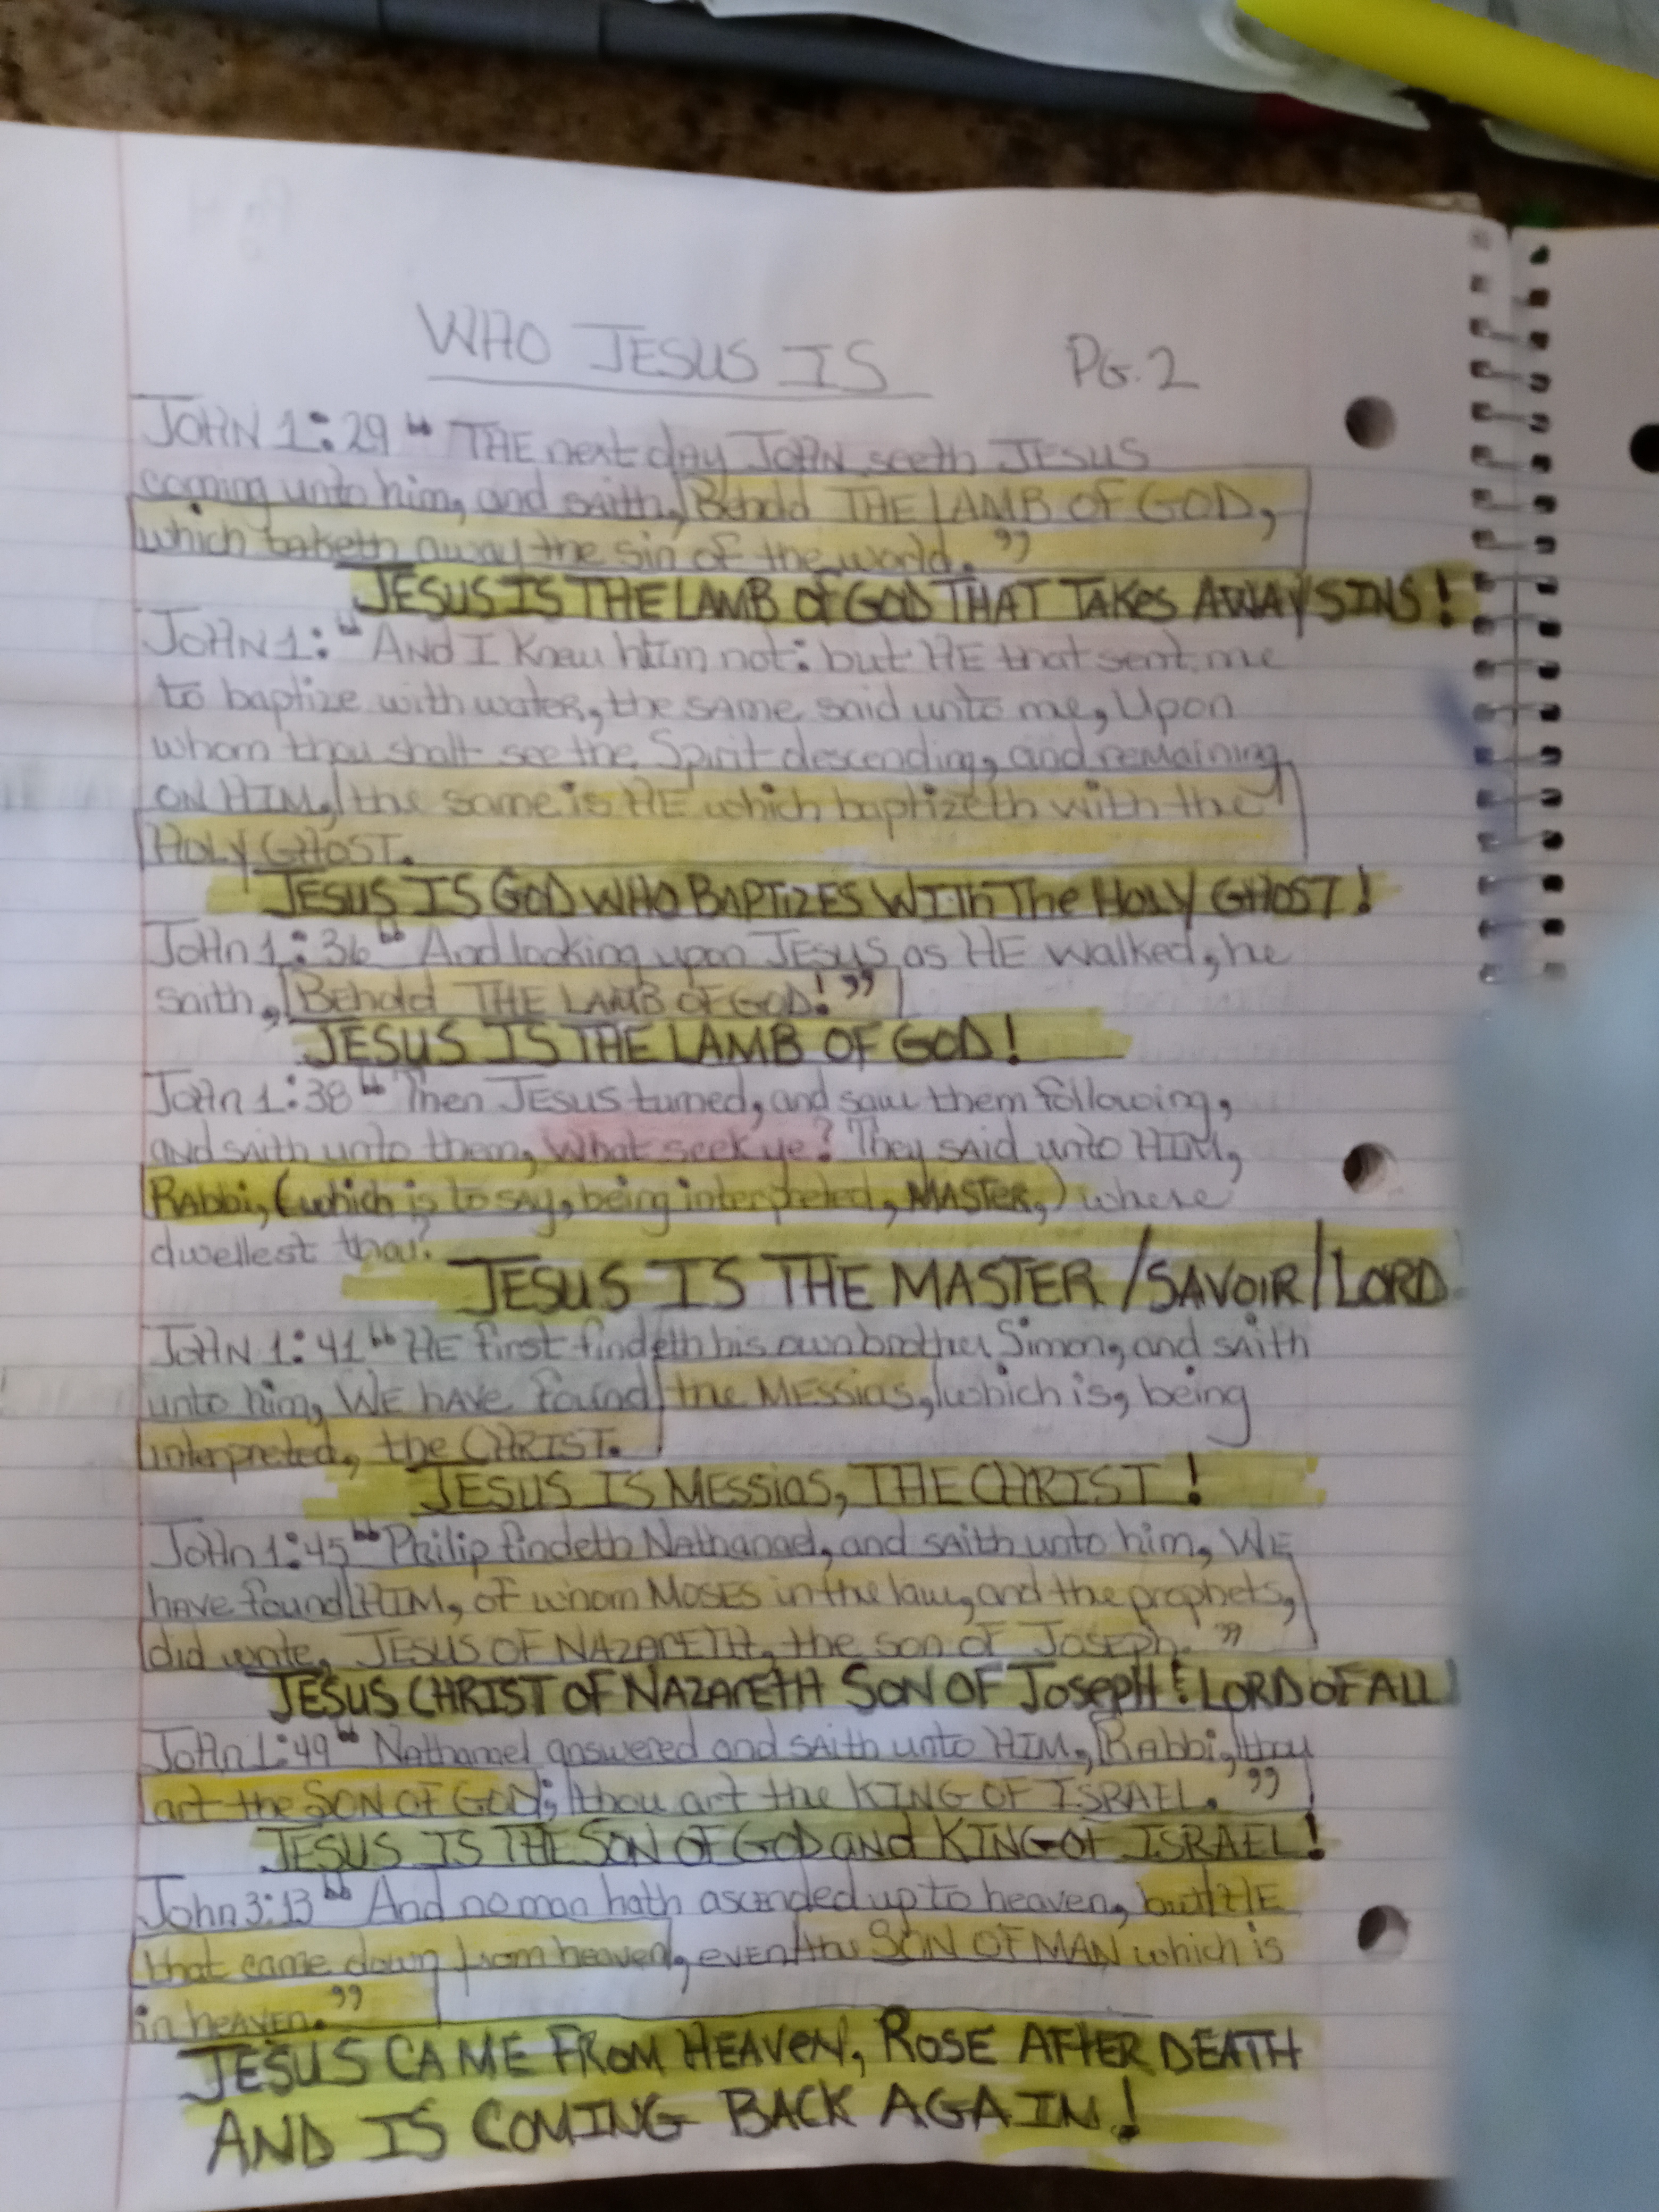 WHO JESUS IS PG.2
JOHN 1:29 "THE next day JOHN seeth JESUS
coming unto him, and saith, Behold THE LAMB OF GOD,
which taketh away the sin of the world."
JESUS IS THE LAMB of GOD THAT TAKES AWAY SINS!
JOHN 1: "AND I knew him not: but HE that sent me
to baptize with water, the same said unto me, Upon
whom thou shalt see the Spirit descending, and remaining
ON HIM, the same is HE which baptizeth with the
HOLY GHOST.
JESUS IS GOD WHO BAPTIZES WITH The HOLY GHOST!
JOHn 1:36 "And looking upon JESUS as HE walked, he
saith, Behold THE LAMB OF GOD!"
JESUS IS THE LAMB OF GOD!
JOHn 1:38 "Then JESUS turned, and saw them following,
and saith unto them, What seek ye? They said unto HIM,
RAbbi, (which is to say, being interpreted, MASTER,) where
dwellest thou?
JESUS IS THE MASTER/SAVOIR/LORD
JOHN 1:41 "HE first findeth his own brother Simon, and saith
unto him, WE HAVE found the MESSias, which is, being
interpreted, the CHRIST.
JESUS IS MESSias, THE CHRIST!
JOHn 1:45 "Philip findeth Nathanael, and saith unto him, WE
have found HIM, of whom MOSES in the law, and the prophets,
did write, JESUS OF NAZARETH, the son of Joseph."
JESUS CHRIST OF NAZARETH SON OF JosepH & LORD OF ALL!
JOHn 1:49 "Nathanael answered and saith unto HIM, Rabbi, thou
art the SON OF GOD; thou art the KING OF ISRAEL."
JESUS IS THE SON OF GOD and KING OF ISRAEL!
John 3:13 "And no man hath ascended up to heaven, but HE
that came down from heaven, even the SON OF MAN which is
in heaven."
JESUS CAME FROM HEAVEN, ROSE AFTER DEATH
AND IS COMING BACK AGAIN!